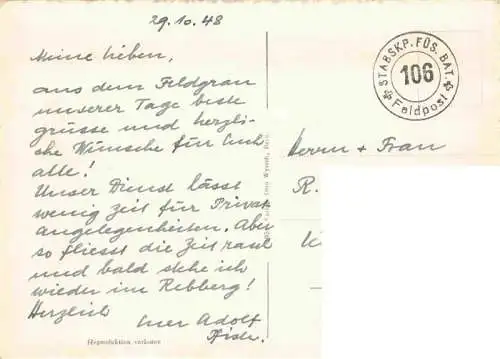 29.10.48
Meine Lieben,
aus dem Feldgrau
unserer Tage beste
grüsse und herzli-
che Wünsche für Euch
alle!
Unser Dienst lässt
wenig Zeit für Privat-
angelegenheiten. Aber
so fliesst die Zeit rasch
und bald stehe ich
wieder im Rebberg!
Herzlich
Euer Adolf
STABSKP. FÜS. BAT.
106
Feldpost
Herrn + Frau
R.
Reproduktion verboten